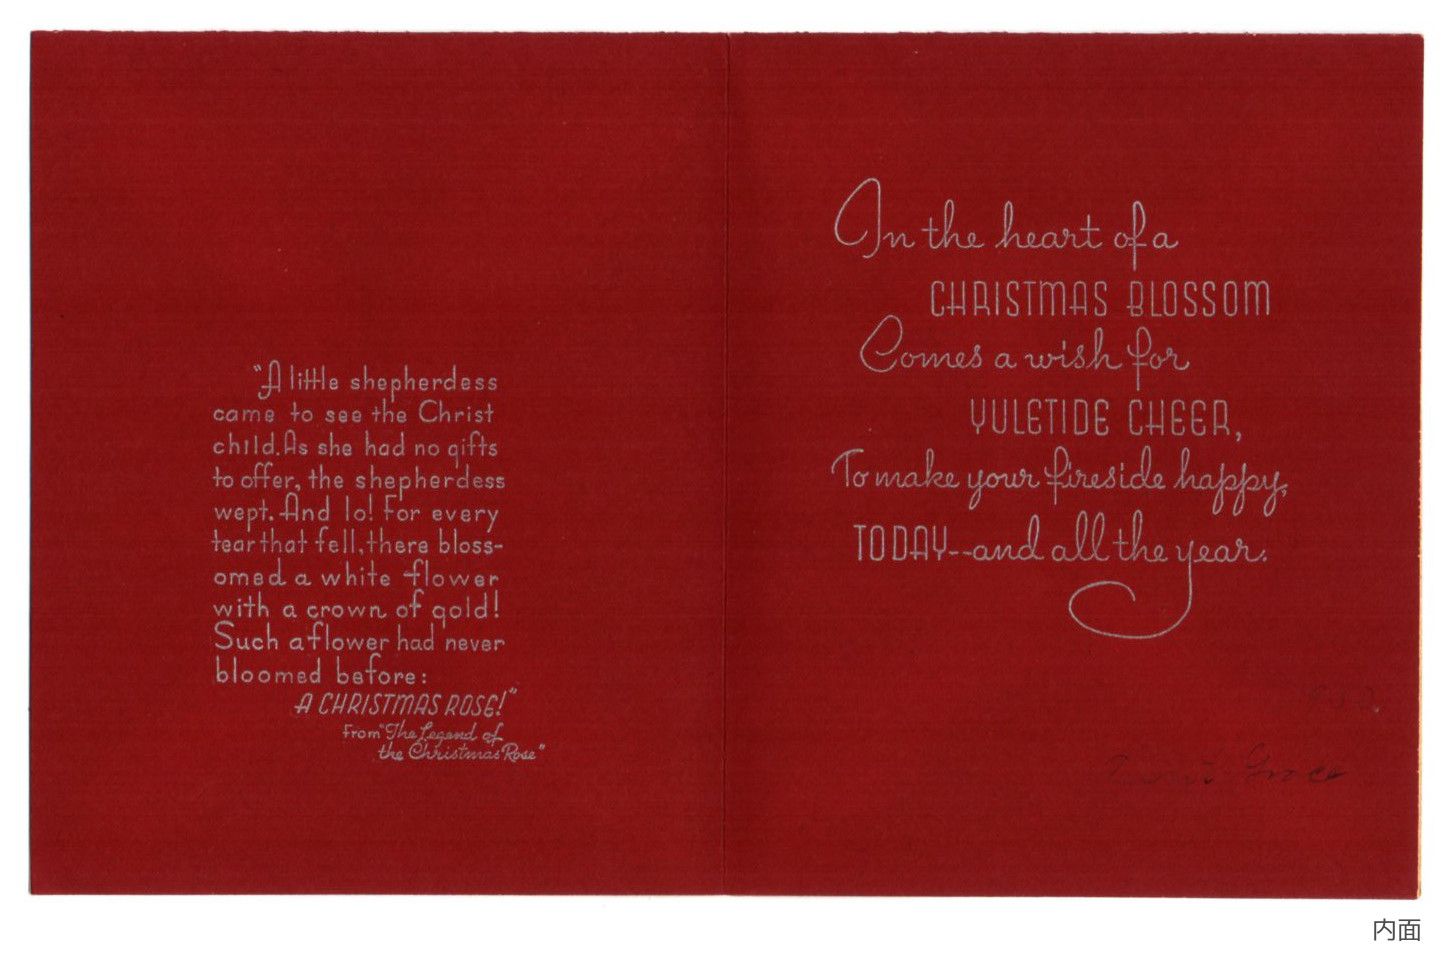 "A little shepherdess
came to see the Christ
child. As she had no gifts
to offer, the shepherdess
wept. And lo! For every
tear that fell, there bloss-
omed a white flower
with a crown of gold!
Such a flower had never
bloomed before:
A CHRISTMAS ROSE!"
From "The Legend of
the Christmas Rose"
In the heart of a
CHRISTMAS BLOSSOM
Comes a wish for
YULETIDE CHEER,
To make your fireside happy,
TODAY--and all the year.
Grace
内面